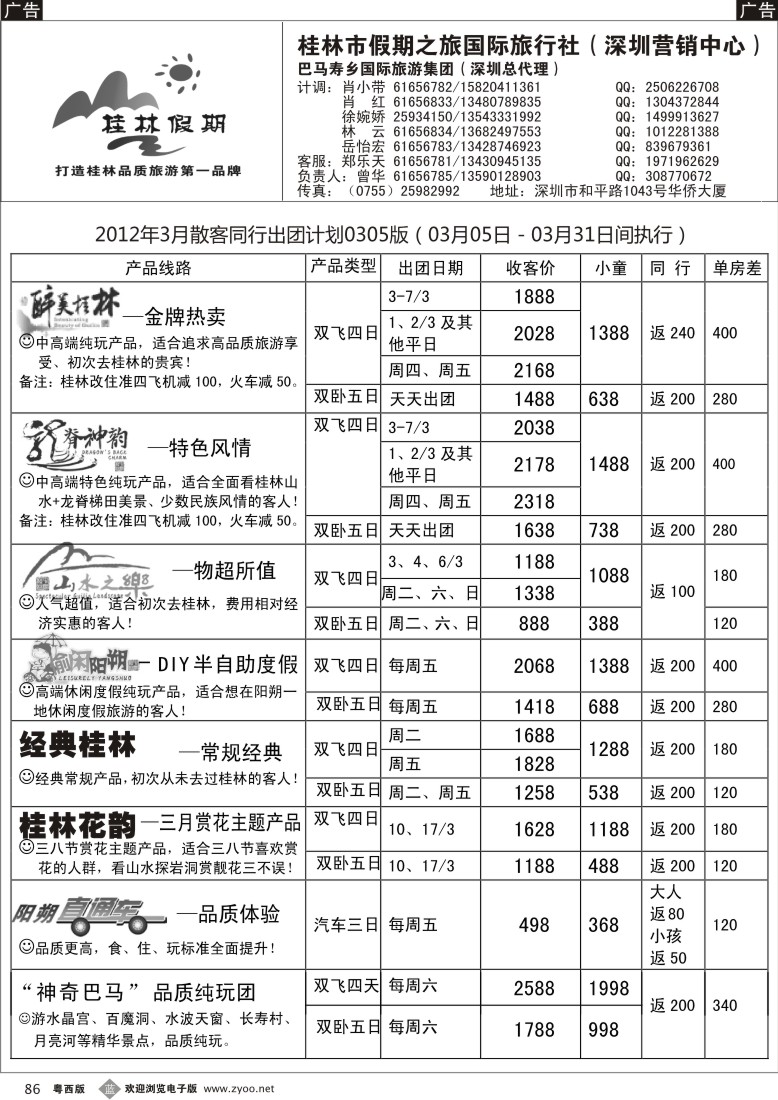 广告
广告
桂林假期
打造桂林品质旅游第一品牌
桂林市假期之旅国际旅行社（深圳营销中心）
巴马寿乡国际旅游集团（深圳总代理）
计调：肖小带 61656782/15820411361 QQ：2506226708
肖 红 61656833/13480789835 QQ：1304372844
徐婉娇 25934150/13543331992 QQ：1499913627
林 云 61656834/13682497553 QQ：1012281388
岳怡宏 61656783/13428746923 QQ：839679361
客服：郑乐天 61656781/13430945135 QQ：1971962629
负责人：曾华 61656785/13590128903 QQ：308770672
传真：（0755）25982992 地址：深圳市和平路1043号华侨大厦
2012年3月散客同行出团计划0305版（03月05日－03月31日间执行）
产品线路 产品类型 出团日期 收客价 小童 同 行 单房差
醉美桂林—金牌热卖
Intoxicating Beauty of Guilin
中高端纯玩产品，适合追求高品质旅游享
受、初次去桂林的贵宾！
备注：桂林改住准四飞机减 100，火车减 50。
双飞四日 3-7/3 1888 1388 返 240 400
1、2/3 及其他平日 2028
周四、周五 2168
双卧五日 天天出团 1488 638 返 200 280
龙脊神韵—特色风情
DRAGON'S BACK CHARM
中高端特色纯玩产品，适合全面看桂林山
水+龙脊梯田美景、少数民族风情的客人！
备注：桂林改住准四飞机减 100，火车减 50。
双飞四日 3-7/3 2038 1488 返 200 400
1、2/3 及其他平日 2178
周四、周五 2318
双卧五日 天天出团 1638 738 返 200 280
山水之乐—物超所值
人气超值，适合初次去桂林，费用相对经
济实惠的客人！
双飞四日 3、4、6/3 1188 1088 返 100 180
周二、六、日 1338
双卧五日 周二、六、日 888 388 120
愉闲阳朔—DIY半自助度假
LEISURELY YANGSHUO
高端休闲度假纯玩产品，适合想在阳朔一
地休闲度假旅游的客人！
双飞四日 每周五 2068 1388 返 200 400
双卧五日 每周五 1418 688 返 200 280
经典桂林—常规经典
经典常规产品，初次从未去过桂林的客人！
双飞四日 周二 1688 1288 返 200 180
周五 1828
双卧五日 周二、周五 1258 538 返 200 120
桂林花韵—三月赏花主题产品
三八节赏花主题产品，适合三八节喜欢赏
花的人群，看山水探岩洞赏靓花三不误！
双飞四日 10、17/3 1628 1188 返 200 180
双卧五日 10、17/3 1188 488 返 200 120
阳朔直通车—品质体验
品质更高，食、住、玩标准全面提升！
汽车三日 每周五 498 368 大人返 80 小孩返 50 120
“神奇巴马”品质纯玩团
游水晶宫、百魔洞、水波天窗、长寿村、
月亮河等精华景点，品质纯玩。
双飞四天 每周六 2588 1998 返 200 340
双卧五日 每周六 1788 998
86 粤西版 蓝 欢迎浏览电子版 www.zyoo.net